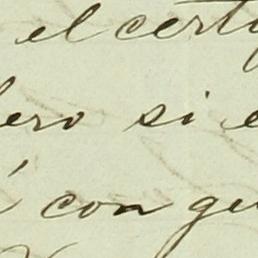 el certi
pero si e
con gu